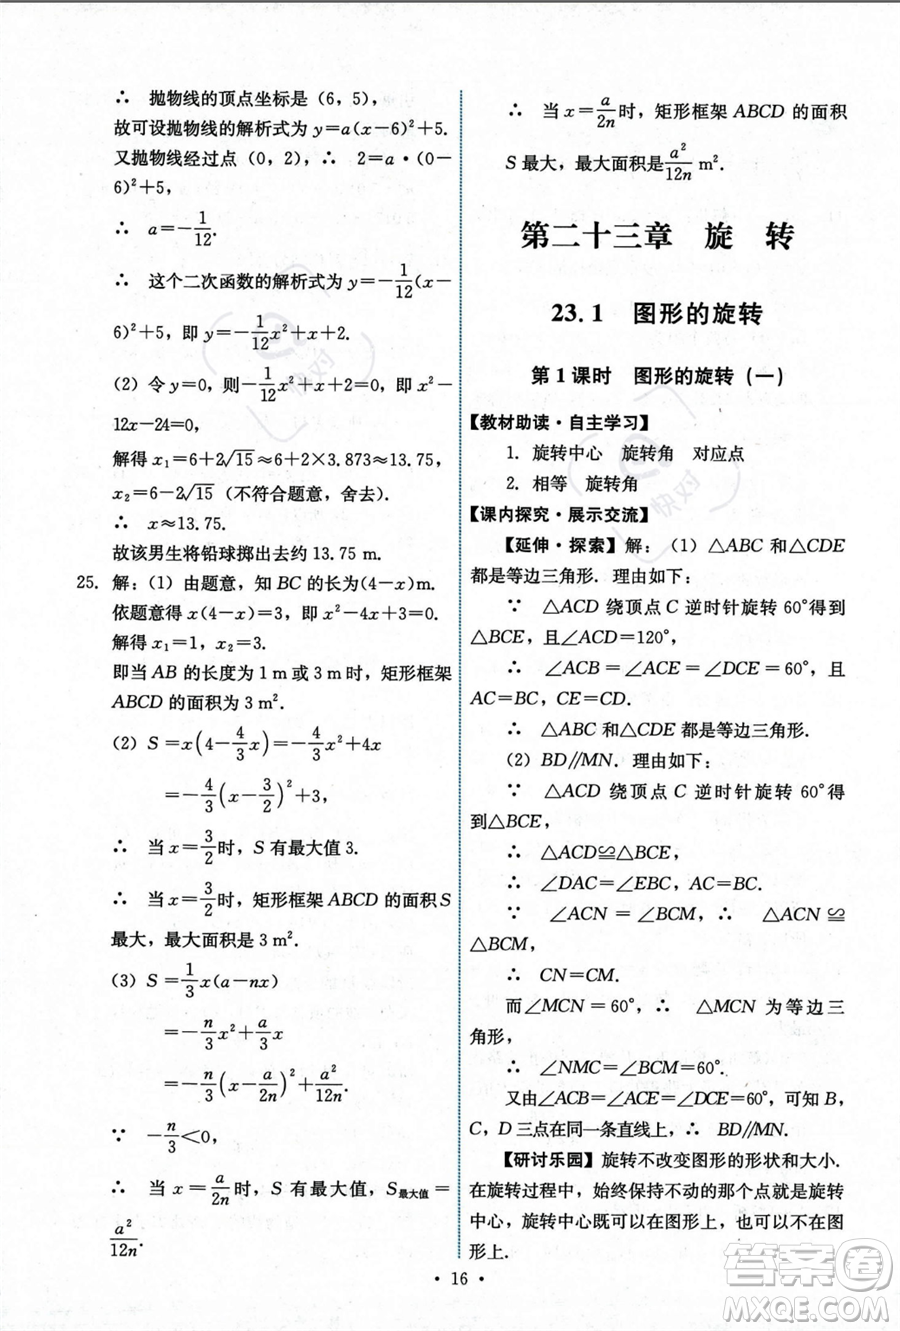 ∴ 抛物线的顶点坐标是 (6, 5),
故可设抛物线的解析式为 y=a(x-6)²+5.
又抛物线经过点 (0, 2), ∴ 2=a·(0-
6)²+5,
∴ a=-1/12.
∴ 这个二次函数的解析式为 y=-1/12(x-
6)²+5, 即 y=-1/12x²+x+2.
(2) 令 y=0, 则-1/12x²+x+2=0, 即 x²-
12x-24=0,
解得 x₁=6+2√15≈6+2×3.873≈13.75,
x₂=6-2√15 (不符合题意, 舍去).
∴ x≈13.75.
故该男生将铅球掷出去约 13.75 m.
25. 解: (1) 由题意, 知 BC 的长为(4-x)m.
依题意得 x(4-x)=3, 即 x²-4x+3=0.
解得 x₁=1, x₂=3.
即当 AB 的长度为 1 m 或 3 m 时, 矩形框架
ABCD 的面积为 3 m².
(2) S=x(4-4/3x)=-4/3x²+4x
=-4/3(x-3/2)²+3,
∴ 当 x=3/2时, S 有最大值 3.
∴ 当 x=3/2时, 矩形框架 ABCD 的面积 S
最大, 最大面积是 3 m².
(3) S=1/3x(a-nx)
=-n/3x²+a/3x
=-n/3(x-a/2n)²+a²/12n.
∵ -n/3<0,
∴ 当 x=a/2n时, S 有最大值, S最大值=
a²/12n.
∴ 当 x=a/2n时, 矩形框架 ABCD 的面积
S 最大, 最大面积是a²/12n m².
第二十三章 旋 转
23.1 图形的旋转
第 1 课时 图形的旋转 (一)
【教材助读·自主学习】
1. 旋转中心 旋转角 对应点
2. 相等 旋转角
【课内探究·展示交流】
【延伸·探索】解: (1) △ABC 和△CDE
都是等边三角形. 理由如下:
∵ △ACD 绕顶点 C 逆时针旋转 60°得到
△BCE, 且∠ACD=120°,
∴ ∠ACB=∠ACE=∠DCE=60°, 且
AC=BC, CE=CD.
∴ △ABC 和△CDE 都是等边三角形.
(2) BD∥MN. 理由如下:
∵ △ACD 绕顶点 C 逆时针旋转 60°得
到△BCE,
∴ △ACD≌△BCE.
∴ ∠DAC=∠EBC, AC=BC.
∵ ∠ACN=∠BCM, ∴ △ACN≌
△BCM.
∴ CN=CM.
而∠MCN=60°, ∴ △MCN 为等边三
角形,
∴ ∠NMC=∠ACB=60°.
又由∠ACB=∠ACE=∠DCE=60°, 可知 B,
C, D 三点在同一条直线上, ∴ BD∥MN.
【研讨乐园】旋转不改变图形的形状和大小.
在旋转过程中, 始终保持不动的那个点就是旋转
中心, 旋转中心既可以在图形上, 也可以不在图
形上.
· 16 ·
快对
快对
答案圈
MXQE.COM